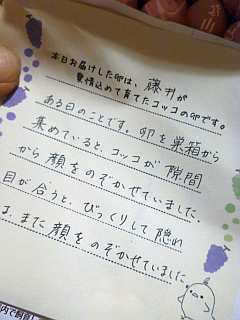 本日お届けした卵は、藤井が
愛情込めて育てたコッコの卵です。
ある日のことです。卵を巣箱から
集めていると、コッコが隙間
から顔をのぞかせていました。
目が合うと、びっくりして隠れ
は、また顔をのぞかせていました